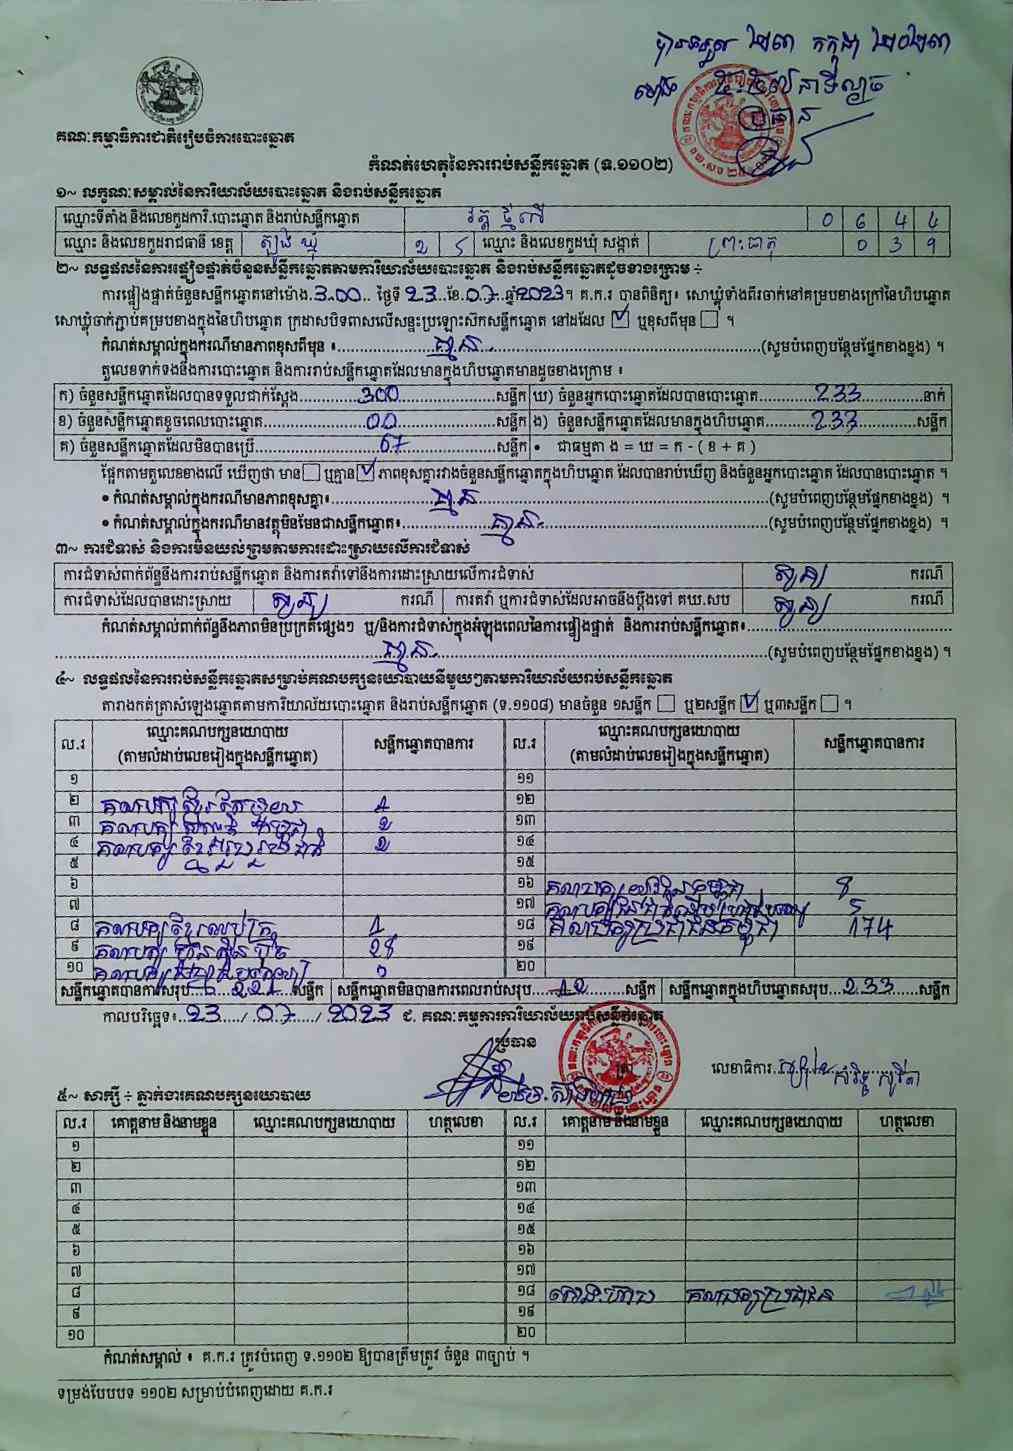 បានទទួល ២៣ កក្កដា ២០២៣
ម៉ោង
គណៈកម្មាធិការជាតិរៀបចំការបោះឆ្នោត
កំណត់ហេតុនៃការរាប់សន្លឹកឆ្នោត (ទ.១១០២)
១~ លក្ខណៈសម្គាល់នៃការិយាល័យបោះឆ្នោត និងរាប់សន្លឹកឆ្នោត
ឈ្មោះទីតាំង និងលេខកូដការិ.បោះឆ្នោត និងរាប់សន្លឹកឆ្នោត វត្ត ថ្មី 0 6 4 4
ឈ្មោះ និងលេខកូដរាជធានី ខេត្ត ត្បូងឃ្មុំ 2 5 ឈ្មោះ និងលេខកូដឃុំ សង្កាត់ ព្រះធាតុ 0 3 9
២~ លទ្ធផលនៃការផ្ទៀងផ្ទាត់ចំនួនសន្លឹកឆ្នោតតាមការិយាល័យបោះឆ្នោត និងរាប់សន្លឹកឆ្នោតដូចខាងក្រោម ÷
ការផ្ទៀងផ្ទាត់ចំនួនសន្លឹកឆ្នោតនៅម៉ោង.3.00.. ថ្ងៃទី 23 ខែ.07.ឆ្នាំ2023។ គ.ក.រ បានពិនិត្យ៖ សោឃ្លុំទាំងពីរចាក់នៅគម្របខាងក្រៅនៃហិបឆ្នោត
សោឃ្លុំចាក់ភ្ជាប់គម្របខាងក្នុងនៃហិបឆ្នោត ក្រដាសបិទពាសលើសន្ទះប្រឡោះស៊កសន្លឹកឆ្នោត នៅដដែល ☑ ឬខុសពីមុន ☐ ។
កំណត់សម្គាល់ក្នុងករណីមានភាពខុសពីមុន ៖ គ្មាន (សូមបំពេញបន្ថែមផ្នែកខាងខ្នង) ។
តួលេខទាក់ទងនឹងការបោះឆ្នោត និងការរាប់សន្លឹកឆ្នោតដែលមានក្នុងហិបឆ្នោតមានដូចខាងក្រោម ៖
ក) ចំនួនសន្លឹកឆ្នោតដែលបានទទួលជាក់ស្តែង 300 សន្លឹក ឃ) ចំនួនអ្នកបោះឆ្នោតដែលបានបោះឆ្នោត 233 នាក់
ខ) ចំនួនសន្លឹកឆ្នោតខូចពេលបោះឆ្នោត 00 សន្លឹក ង) ចំនួនសន្លឹកឆ្នោតដែលមានក្នុងហិបឆ្នោត 233 សន្លឹក
គ) ចំនួនសន្លឹកឆ្នោតដែលមិនបានប្រើ 67 សន្លឹក • ជាធម្មតា ង = ឃ = ក - ( ខ + គ )
ផ្អែកតាមតួលេខខាងលើ ឃើញថា មាន ☐ ឬគ្មាន ☑ ភាពខុសគ្នារវាងចំនួនសន្លឹកឆ្នោតក្នុងហិបឆ្នោត ដែលបានរាប់ឃើញ និងចំនួនអ្នកបោះឆ្នោត ដែលបានបោះឆ្នោត ។
• កំណត់សម្គាល់ក្នុងករណីមានភាពខុសគ្នា៖ គ្មាន (សូមបំពេញបន្ថែមផ្នែកខាងខ្នង) ។
• កំណត់សម្គាល់ក្នុងករណីមានវត្ថុមិនមែនជាសន្លឹកឆ្នោត៖ គ្មាន (សូមបំពេញបន្ថែមផ្នែកខាងខ្នង) ។
៣~ ការជំទាស់ និងការមិនយល់ព្រមតាមការដោះស្រាយលើការជំទាស់
ការជំទាស់ពាក់ព័ន្ធនឹងការរាប់សន្លឹកឆ្នោត និងការតវ៉ាទៅនឹងការដោះស្រាយលើការជំទាស់ សូន្យ ករណី
ការជំទាស់ដែលបានដោះស្រាយ សូន្យ ករណី ការតវ៉ា ឬការជំទាស់ដែលអាចនឹងប្តឹងទៅ គឃ.សប សូន្យ ករណី
កំណត់សម្គាល់ពាក់ព័ន្ធនឹងភាពមិនប្រក្រតីផ្សេងៗ ឬ/និងការជំទាស់ក្នុងអំឡុងពេលនៃការផ្ទៀងផ្ទាត់ និងការរាប់សន្លឹកឆ្នោត៖
គ្មាន (សូមបំពេញបន្ថែមផ្នែកខាងខ្នង) ។
៤~ លទ្ធផលនៃការរាប់សន្លឹកឆ្នោតសម្រាប់គណបក្សនយោបាយនីមួយៗតាមការិយាល័យរាប់សន្លឹកឆ្នោត
តារាងកត់ត្រាសំឡេងឆ្នោតតាមការិយាល័យបោះឆ្នោត និងរាប់សន្លឹកឆ្នោត (ទ.១១០៨) មានចំនួន ១សន្លឹក ☐ ឬ២សន្លឹក ☑ ឬ៣សន្លឹក ☐ ។
ល.រ ឈ្មោះគណបក្សនយោបាយ សន្លឹកឆ្នោតបានការ ល.រ ឈ្មោះគណបក្សនយោបាយ សន្លឹកឆ្នោតបានការ
(តាមលំដាប់លេខរៀងក្នុងសន្លឹកឆ្នោត) (តាមលំដាប់លេខរៀងក្នុងសន្លឹកឆ្នោត)
១ ១១
២ គណបក្ស 1 ១២
៣ គណបក្ស 2 ១៣
៤ គណបក្ស ខ្មែររួបរួមជាតិ 2 ១៤
៥ ១៥
៦ ១៦ គណបក្ស 8
៧ ១៧ គណបក្ស 5
៨ គណបក្ស 1 ១៨ គណបក្សប្រជាជនកម្ពុជា 174
៩ គណបក្ស ហ្វ៊ុនស៊ិនប៉ិច 28 ១៩
១០ គណបក្ស ២០
សន្លឹកឆ្នោតបានការសរុប 221 សន្លឹក សន្លឹកឆ្នោតមិនបានការពេលរាប់សរុប 12 សន្លឹក សន្លឹកឆ្នោតក្នុងហិបឆ្នោតសរុប 233 សន្លឹក
កាលបរិច្ឆេទ៖ 23 / 07 / 2023 ៩. គណៈកម្មការការិយាល័យរាប់សន្លឹកឆ្នោត
ប្រធាន
លេខាធិការ
៥~ សាក្សី ÷ ភ្នាក់ងារគណបក្សនយោបាយ
ល.រ គោត្តនាម និងនាមខ្លួន ឈ្មោះគណបក្សនយោបាយ ហត្ថលេខា ល.រ គោត្តនាម និងនាមខ្លួន ឈ្មោះគណបក្សនយោបាយ ហត្ថលេខា
១ ១១
២ ១២
៣ ១៣
៤ ១៤
៥ ១៥
៦ ១៦
៧ ១៧
៨ ១៨ គណបក្សប្រជាជន
៩ ១៩
១០ ២០
កំណត់សម្គាល់ ៖ គ.ក.រ ត្រូវបំពេញ ទ.១១០២ ឱ្យបានត្រឹមត្រូវ ចំនួន ៣ច្បាប់ ។
ទម្រង់បែបបទ ១១០២ សម្រាប់បំពេញដោយ គ.ក.រ